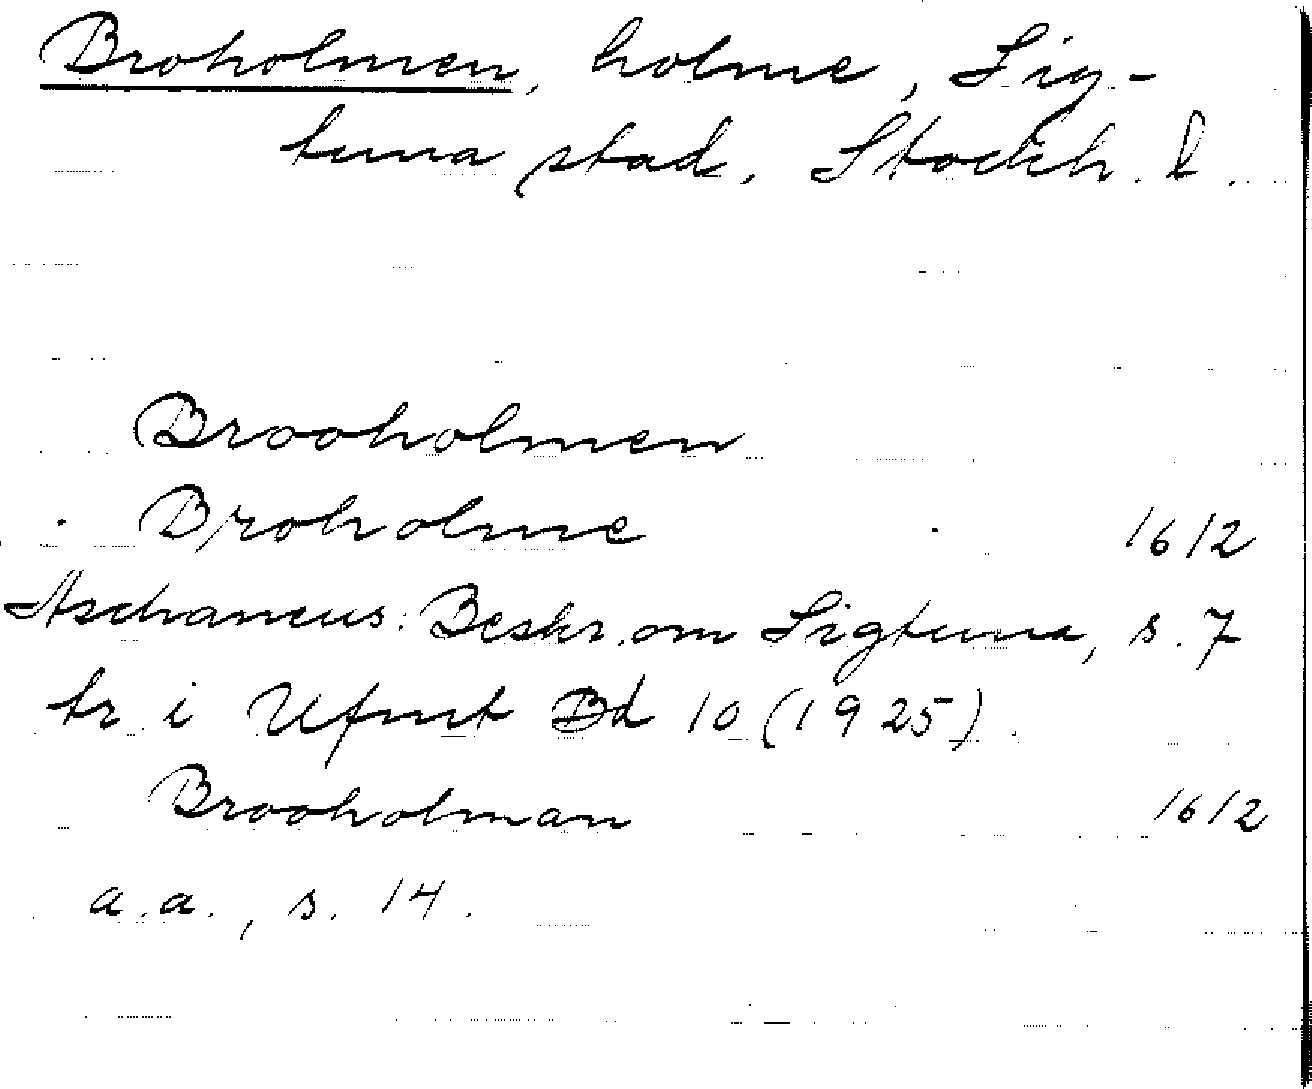 Broholmen, holme, Sig-
tuna stad, Stockh. l.
Brooholmen
Broholme 1612
Aschaneus: Beskr. om Sigtuna, s. 7
tr i Ufmt Bd 10 (1925).
Brooholman 1612
a.a., s. 14.